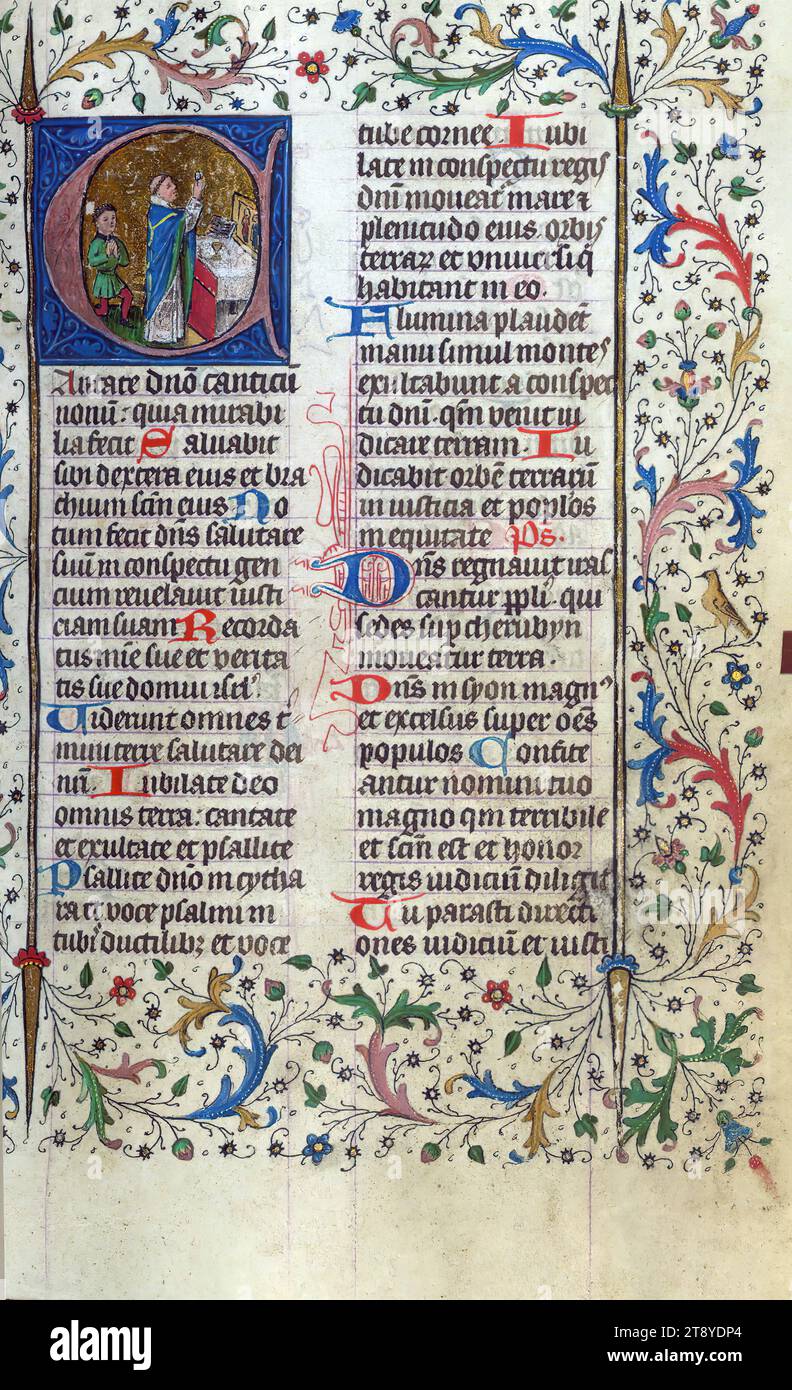 Cantate dno canticū
nouum: quia mirabi
lia fecit Saluabit
sibi dextera eius et bra
chium scm eius No
tum fecit dns salutare
suum in conspectu gen
cium reuelauit iusti
ciam suam Recorda
tus mie sue et verita
tis sue domui isrl
Viderunt omnes t
mini terre salutare dei
nri. Iubilate deo
omnis terra: cantate
et exultate et psallite
Psallite dno in cytha
ra et voce psalmi in
tubis ductilibz et voce
tube cornee Iubi
late in conspectu regis
dni moueat mare et
plenitudo eius orbis
terrar et vniuersi q
habitant in eo.
Flumina plaudent
manu simul montes
exultabunt a conspec
tu dni. qm venit iu
dicare terram. Iu
dicabit orbē terrarū
in iusticia et poplos
in equitate ps.
Dns regnauit iras
cantur ppli. qui
sedes sup cherubyn
moueatur terra.
Dns in syon magn9
et excelsus super oēs
populos Confite
antur nomini tuo
magno qm terribile
et scm est et honor
regis iudiciū diligit
Tu parasti directi
ones iudiciū et iusti
alamy
alamy
Image ID: 2T8YDP4
www.alamy.com